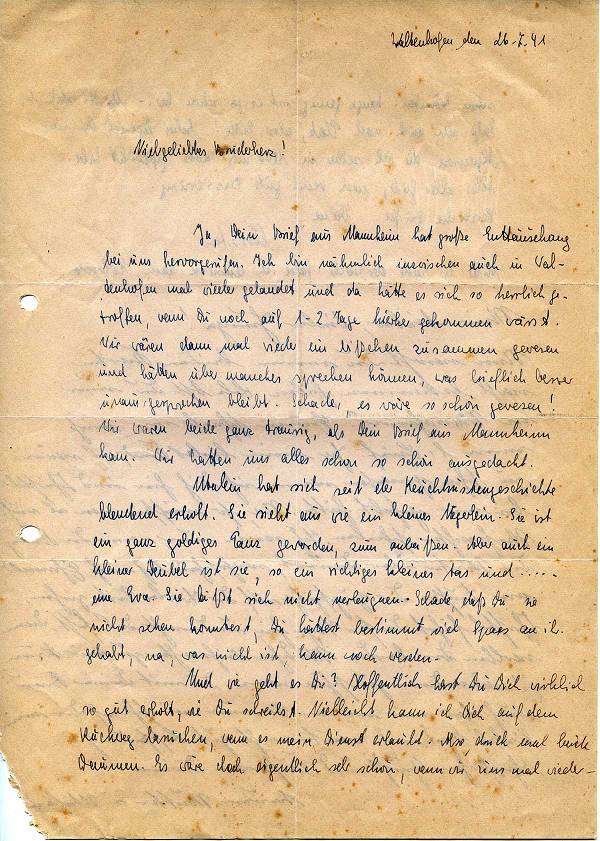 Waltenhofen, den 26.7.41
Vielgeliebtes Bruderherz!
Ja, Dein Brief aus Mannheim hat große Enttäuschung
bei uns hervorgerufen. Ich bin nähmlich inzwischen auch in Wal-
tenhofen mal wieder gelandet und da hätte es sich so herrlich ge-
troffen, wenn Du noch auf 1-2 Tage hierher gekommen wärst.
Wir wären dann mal wieder ein bißchen zusammen gewesen
und hätten über manches sprechen können, was brieflich besser
unausgesprochen bleibt. Schade, es wäre so schön gewesen!
Wir waren beide ganz traurig, als Dein Brief aus Mannheim
kam. Wir hatten uns alles schon so schön ausgedacht.
hat sich seit der Keuchhustengeschichte
blendend erholt. Sie sieht aus wie ein kleines Negerlein. Sie ist
ein ganz goldiges geworden, zum anbeißen. Aber auch ein
kleiner Deubel ist sie, so ein richtiges kleines und .....
eine Eva. Sie läßt sich nicht verleugnen. Schade, daß Du sie
nicht sehen konntest, Du hättest bestimmt viel Spass an ihr
gehabt, na, was nicht ist, kann noch werden.
Und wie geht es Dir? Hoffentlich hast Du Dich wirklich
so gut erholt, wie Du schreibst. Vielleicht kann ich Dich auf dem
Rückweg besuchen, wenn es mein Dienst erlaubt. Also, drück mal beide
Daumen. Es wäre doch eigentlich sehr schön, wenn wir uns mal wieder-